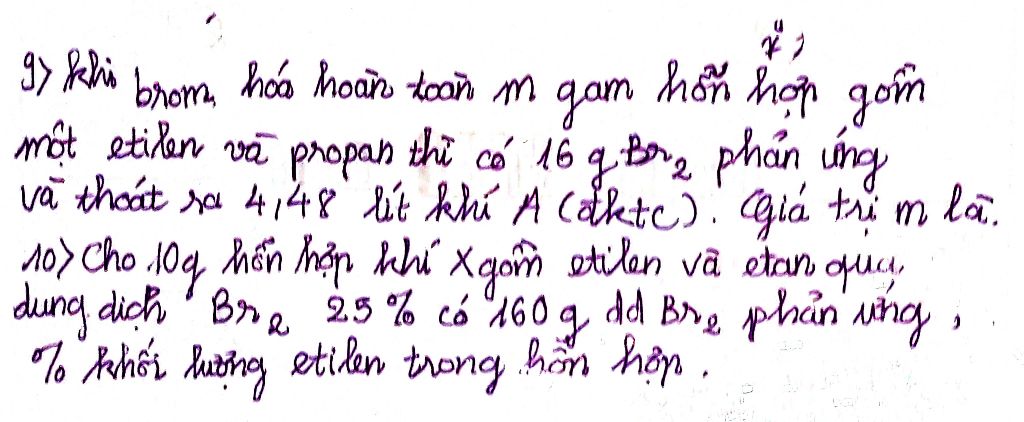 X,
9) Khi brom hoá hoàn toàn m gam hỗn hợp gồm
một etilen và propan thì có 16 g Br2 phản ứng
và thoát ra 4,48 lít khí A (đktc). Giá trị m là.
10) Cho 10g hỗn hợp khí X gồm etilen và etan qua
dung dịch Br2 25% có 160 g dd Br2 phản ứng,
% khối lượng etilen trong hỗn hợp.